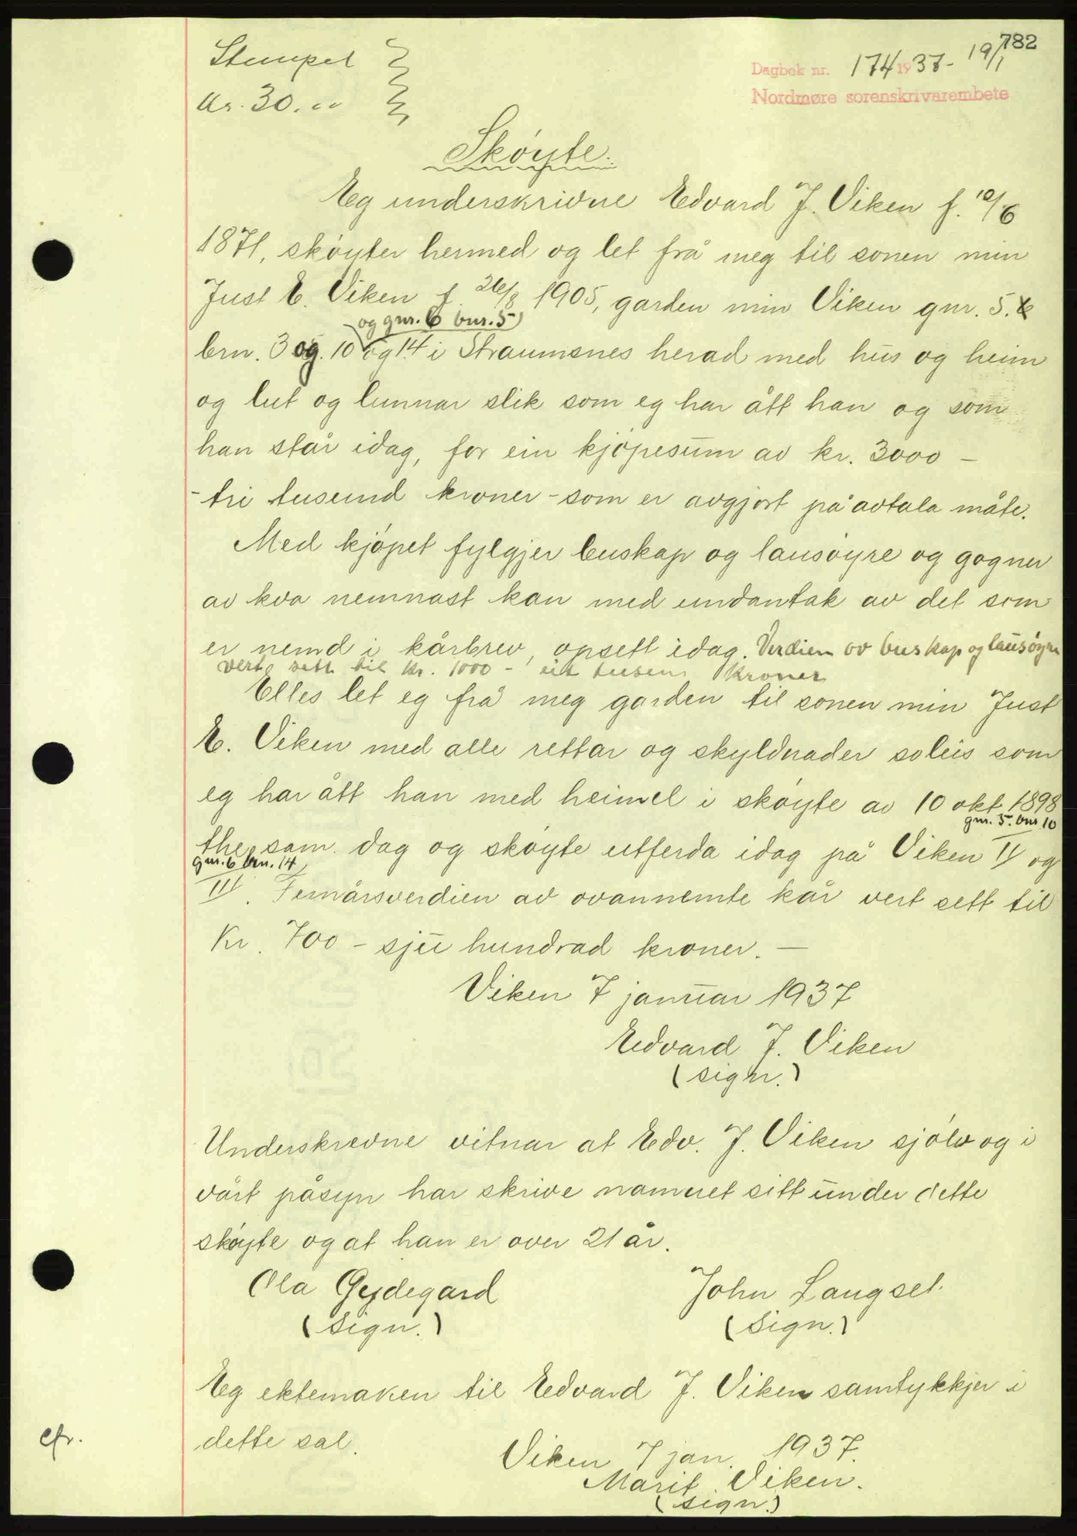 782
Stempel
Kr. 30.00
Dagbok nr. 174 1937 - 19/1
Nordmøre sorenskrivarembete
Skøyte.
Eg underskrivne Edvard J. Viken f. 10/6
1871, skøyter hermed og let frå meg til sonen min
Just E. Viken f. 26/8 1905, garden min Viken gnr. 5.
og gnr. 6 bnr. 5)
brn. 3 og 10 og 14 i Straumsnes herad med hus og heim
og lut og lunnar slik som eg har ått han og som
han står idag, for ein kjøpesum av kr. 3000 -
- tri tuseind kroner - som er avgjort på avtala måte.
Med kjøpet fylgjer buskap og lausøyre og gogner
av kva nemnast kan med undantak av det som
er nemd i kårbrev, opsett idag. Verdien ov buskap og lausøyre
vert sett til kr. 1000 - eit tusen kroner
Elles let eg frå meg garden til sonen min Just
E. Viken med alle rettar og skyldnader soleis som
eg har ått han med heimel i skøyte av 10 okt. 1898
gnr. 5. bnr 10
the sam. dag og skøyte utferda idag på Viken II og
gnr. 6 brn. 14
III. Femårsverdien av ovannemte kår vert sett til
Kr. 700 - sju hundrad kroner. -
Viken 7 januar 1937
Edvard J. Viken
(sign.)
Underskrevne vitnar at Edv. J. Viken sjølv og i
vårt påsyn har skrive namnet sitt under dette
skøyte og at han er over 21 år.
Ola Gydegard John Langset.
(sign.) (sign.)
Eg ektemaken til Edvard J. Viken samtykkjer i
dette sal.
cfr.
Viken 7 jan. 1937.
Marit Viken.
(sign.)